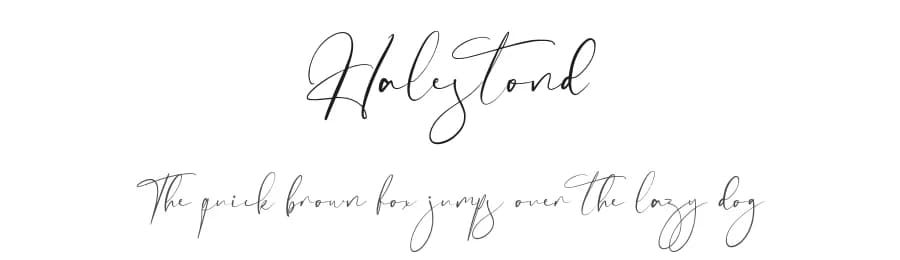 Halystond
The quick brown fox jumps over the lazy dog